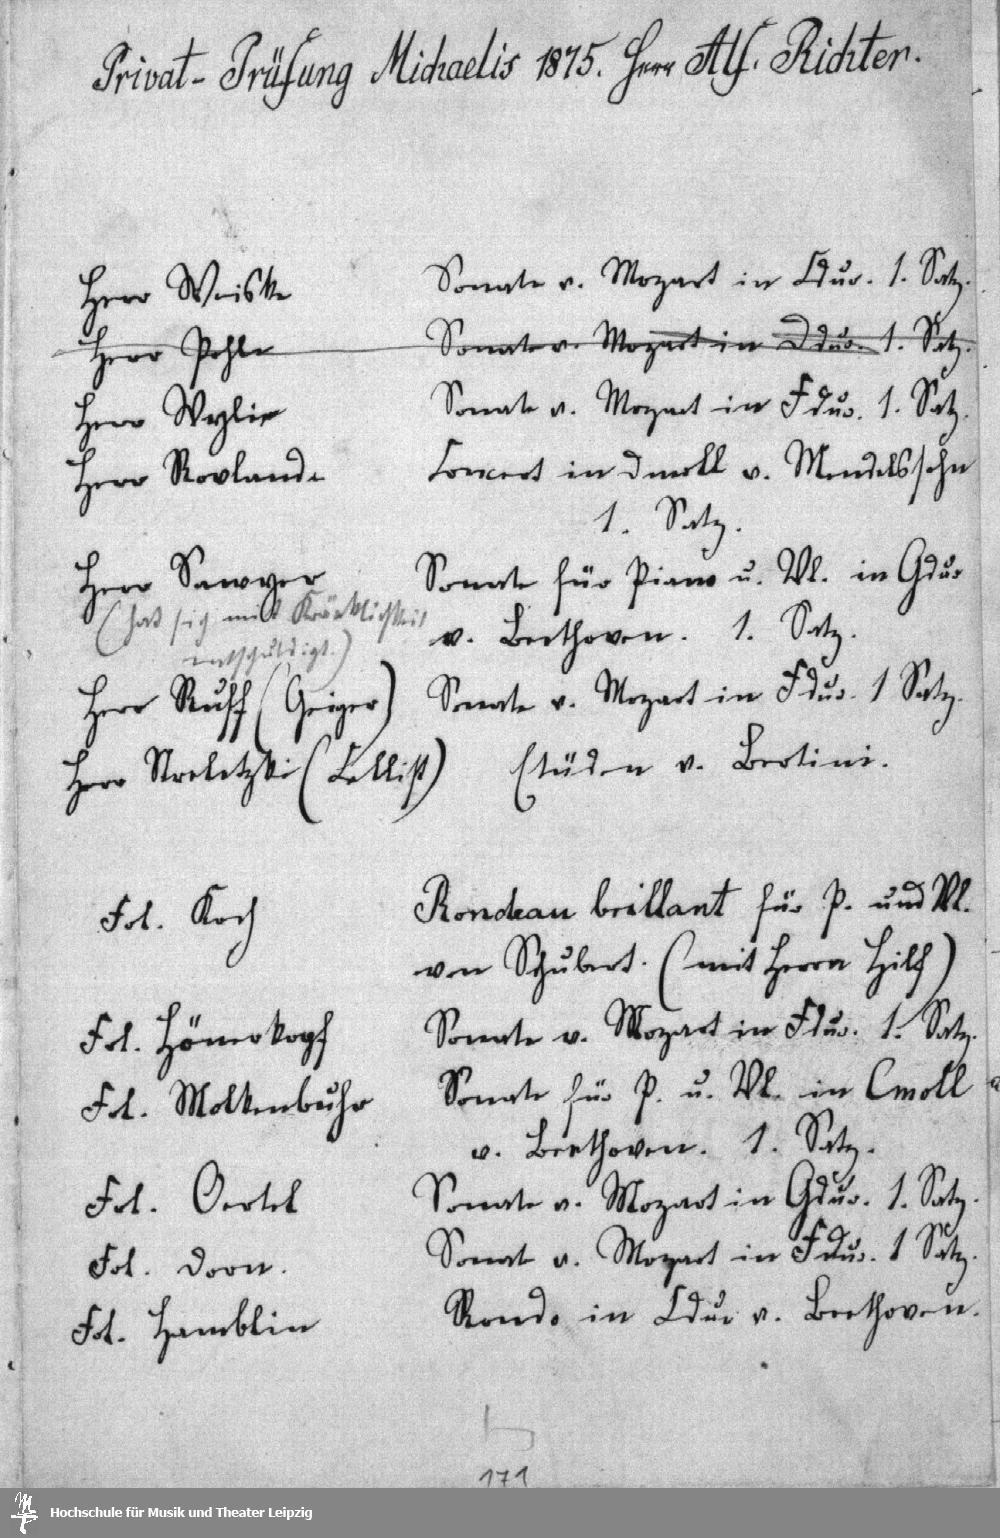 Privat-Prüfung Michaelis 1875. Herr Alf. Richter.
Herr Weiske Sonate v. Mozart in Cdur. 1. Satz.
Herr Pohle Sonate v. Mozart in Ddur. 1. Satz.
Herr Wylie Sonate v. Mozart in Fdur. 1. Satz.
Herr Rowlands Concert in dmoll v. Mendelssohn
1. Satz.
Herr Sawyer Sonate für Piano u. Vl. in Gdur
(hat sich mit Kränklichkeit v. Beethoven. 1. Satz.
entschuldigt.)
Herr Ruff (Geiger) Sonate v. Mozart in Fdur. 1 Satz.
Herr Streletzki (Cellist) Etüden v. Bertini.
Frl. Koch Rondeau brillant für P. und Vl.
von Schubert. (mit Herrn Hilf)
Frl. Hömerkopf Sonate v. Mozart in Fdur. 1. Satz.
Frl. Molkenbuhr Sonate für P. u. Vl. in Cmoll
v. Beethoven. 1. Satz.
Frl. Oertel Sonate v. Mozart in Gdur. 1. Satz.
Frl. Dorn. Sonat v. Mozart in Fdur. 1 Satz.
Frl. Hamblin Rondo in Cdur v. Beethoven.
171
Hochschule für Musik und Theater Leipzig